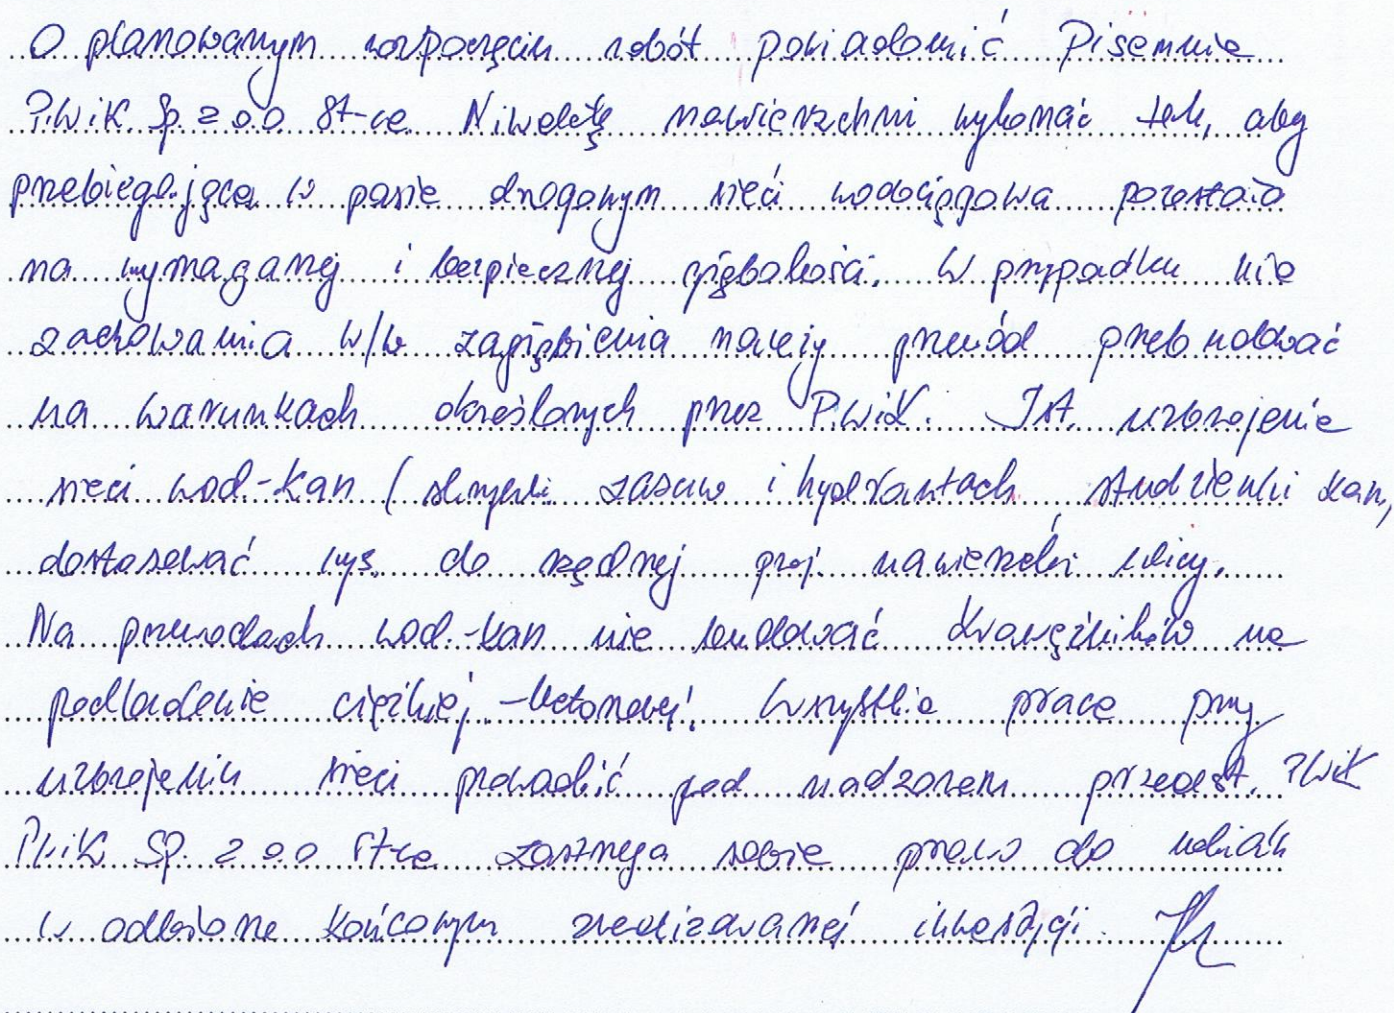 O planowanym rozpoczęciu robót powiadomić Pisemnie
PWiK Sp. z o.o St-ce Niweletę nawierzchni wykonać tak, aby
przebiegająca w pasie drogowym sieć wodociągowa pozostała
na wymaganej i bezpiecznej głębokości. W przypadku nie
zachowania w/w zagłębienia należy przewód przebudować
na warunkach określonych przez PWiK. Ist. uzbrojenie
sieci wod-kan ( skrzynki zasuw i hydrantach studzienki kan,
dostosować wys. do rzędnej proj. nawierzchni ulicy.
Na przewodach wod.-kan nie budować krawężników na
podbudowie ciężkiej -betonowej. Wszystkie prace przy
uzbrojeniu sieci prowadzić pod nadzorem przedst. PWiK
PWiK Sp. z o.o St-ce zastrzega sobie prawo do udziału
w odbiorze końcowym zrealizowanej inwestycji.